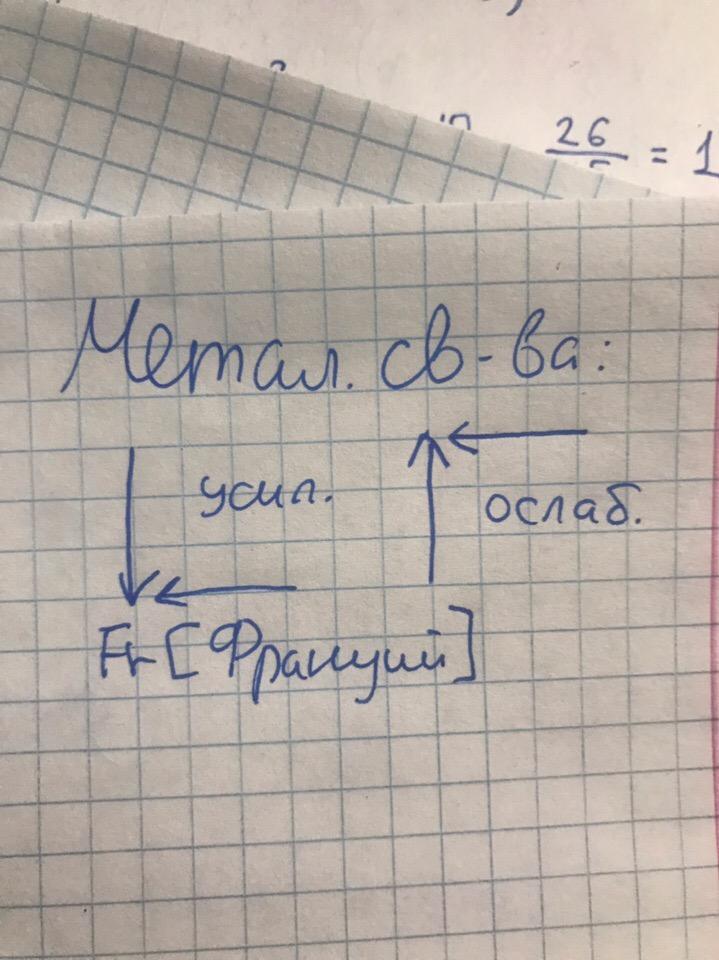 26 = 1
Метал. св-ва:
усил.
ослаб.
Fr [Франций]